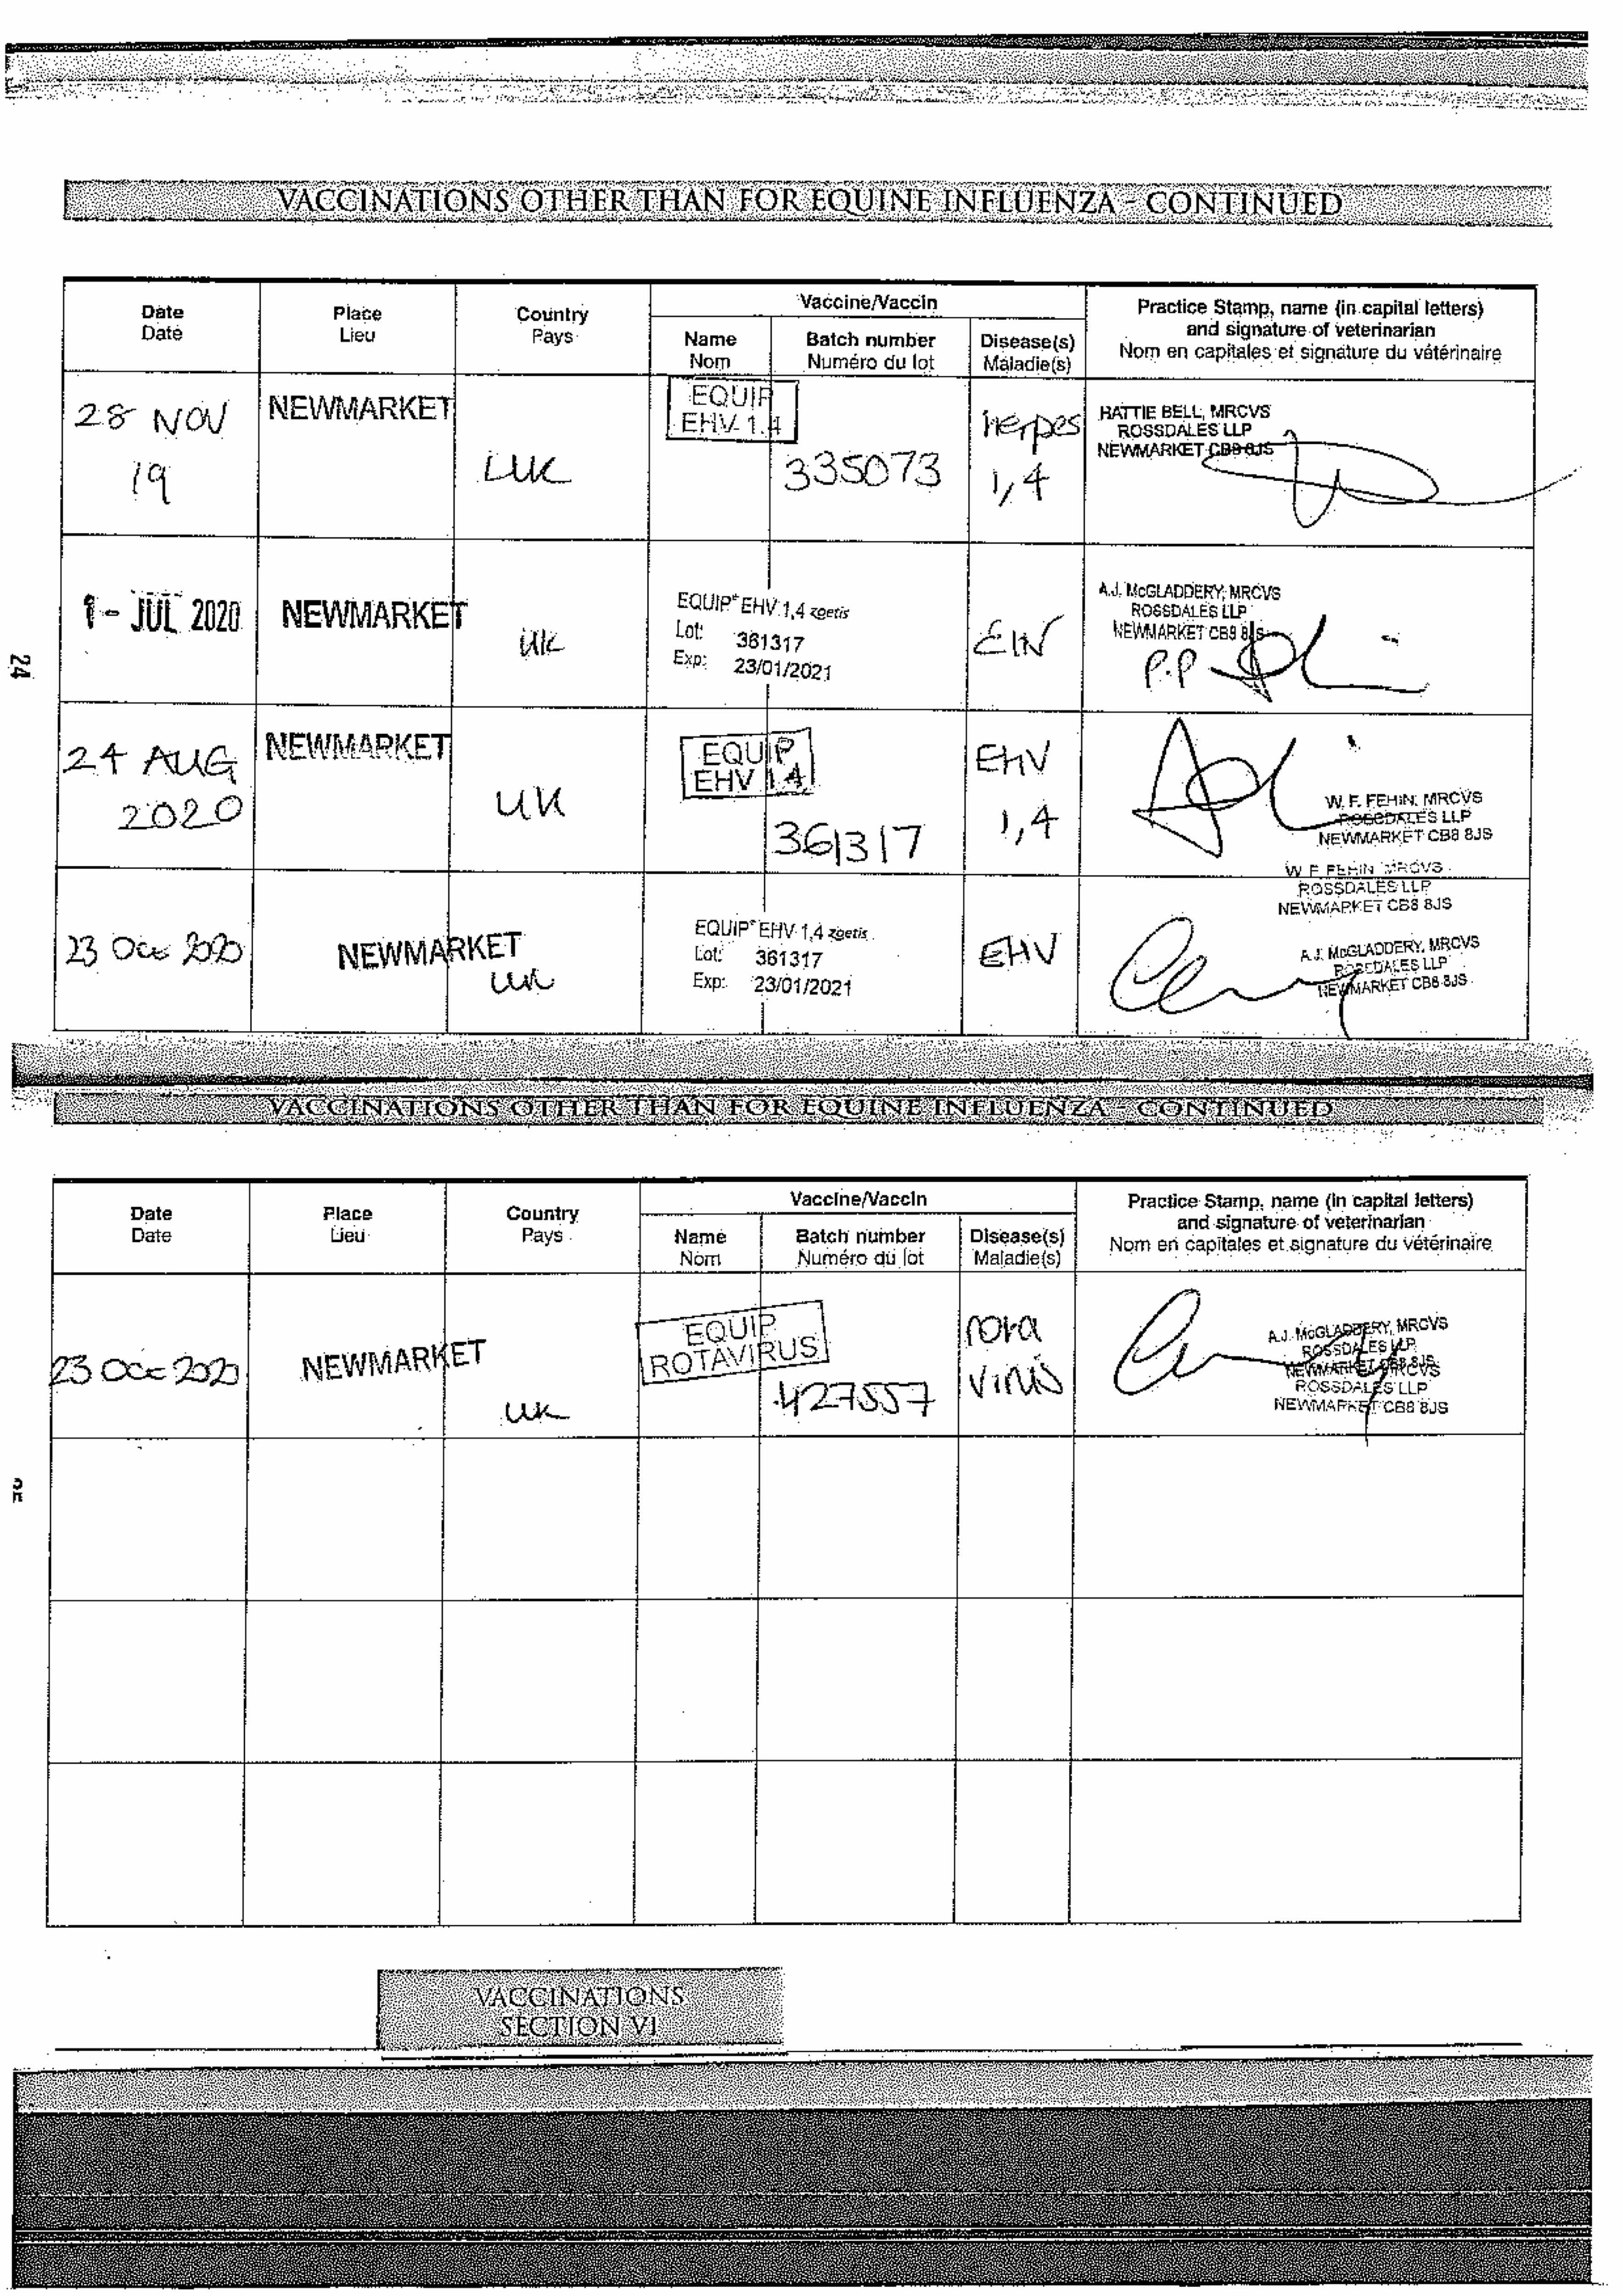 VACCINATIONS OTHER THAN FOR EQUINE INFLUENZA - CONTINUED
Date
Date
Place
Lieu
Country
Pays
Vaccine/Vaccin
Name
Nom
Batch number
Numéro du lot
Disease(s)
Maladie(s)
Practice Stamp, name (in capital letters)
and signature of veterinarian
Nom en capitales et signature du vétérinaire
28 NOV
19
NEWMARKET
UK
EQUIP
EHV 1.4
335073
herpes
1,4
HATTIE BELL, MRCVS
ROSSDALES LLP
NEWMARKET CB8 8JS
1 - JUL 2020
NEWMARKET
UK
EQUIP EHV 1,4 zoetis
Lot: 361317
Exp: 23/01/2021
A.J. McGLADDERY, MRCVS
ROSSDALES LLP
NEWMARKET CB8 8JS
P.P
24 AUG
2020
NEWMARKET
UK
EQUIP
EHV 1.4
361317
EHV
1,4
W. F. FEHIN, MRCVS
ROSSDALES LLP
NEWMARKET CB8 8JS
23 Oct 2020
NEWMARKET
UK
EQUIP EHV 1,4 zoetis
Lot: 361317
Exp: 23/01/2021
EHV
W F FEHIN MRCVS
ROSSDALES LLP
NEWMARKET CB8 8JS
A.J. McGLADDERY, MRCVS
ROSSDALES LLP
NEWMARKET CB8 8JS
24
VACCINATIONS OTHER THAN FOR EQUINE INFLUENZA - CONTINUED
Date
Date
Place
Lieu
Country
Pays
Vaccine/Vaccin
Name
Nom
Batch number
Numéro du lot
Disease(s)
Maladie(s)
Practice Stamp, name (in capital letters)
and signature of veterinarian
Nom en capitales et signature du vétérinaire
23 Oct 2020
NEWMARKET
UK
EQUIP
ROTAVIRUS
427557
rota
virus
A.J. McGLADDERY, MRCVS
ROSSDALES LLP
NEWMARKET CB8 8JS
MRCVS
ROSSDALES LLP
NEWMARKET CB8 8JS
VACCINATIONS
SECTION VI